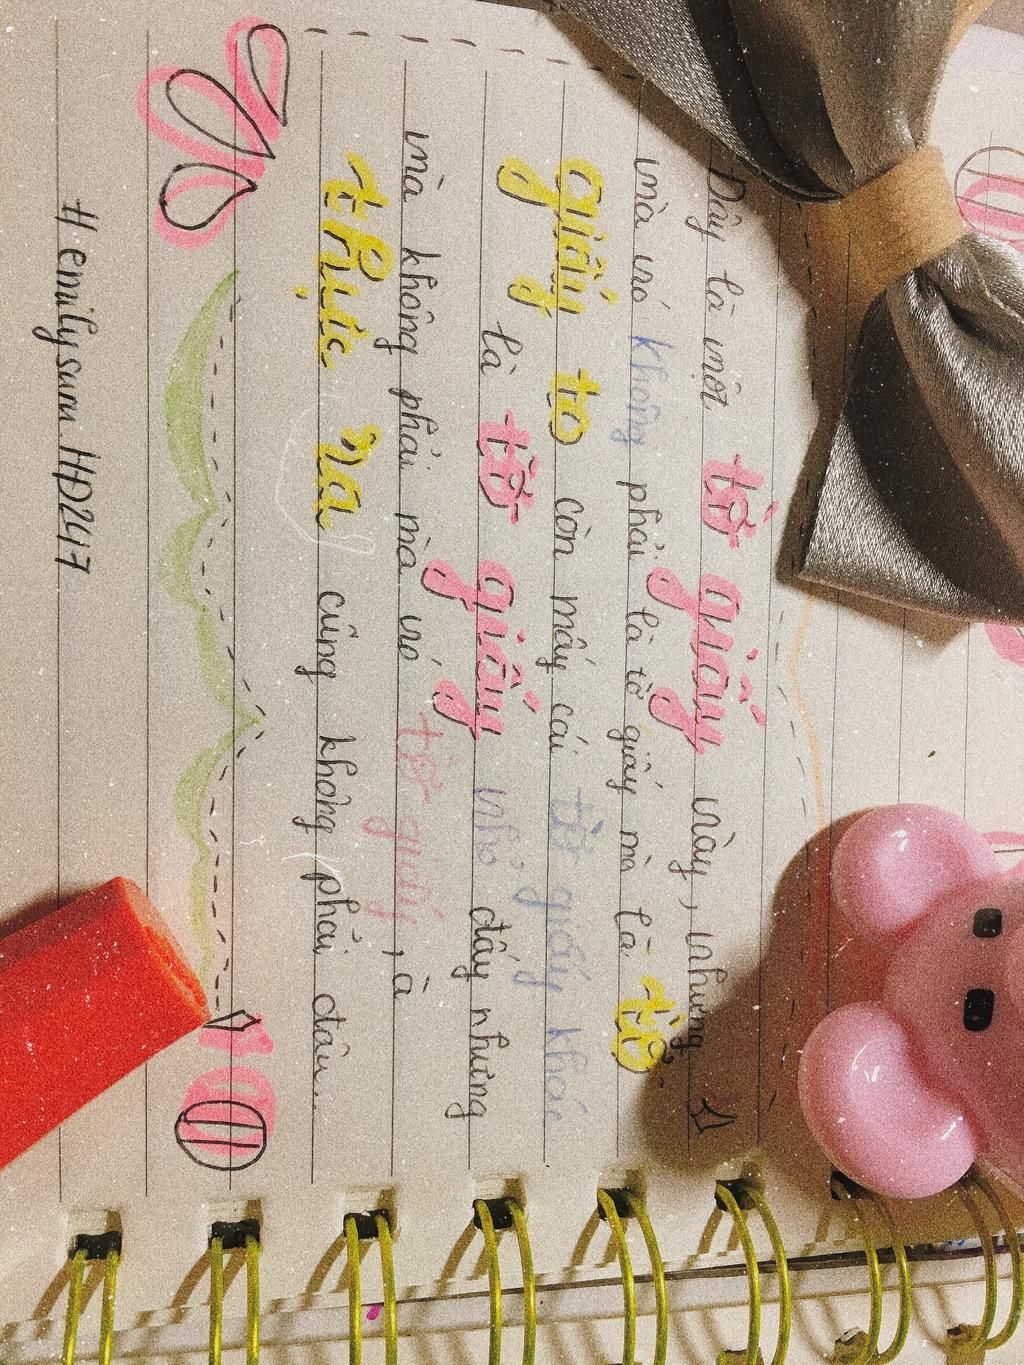 Đây là một tờ giấy này, nhưng
mà nó không phải là tờ giấy mà là tờ
giấy to còn mấy cái tờ giấy khác
là tờ giấy nhỏ đấy nhưng
mà không phải mà nó tờ giấy, à
thực ra cũng không phải đâu...
#emilysunnHD247